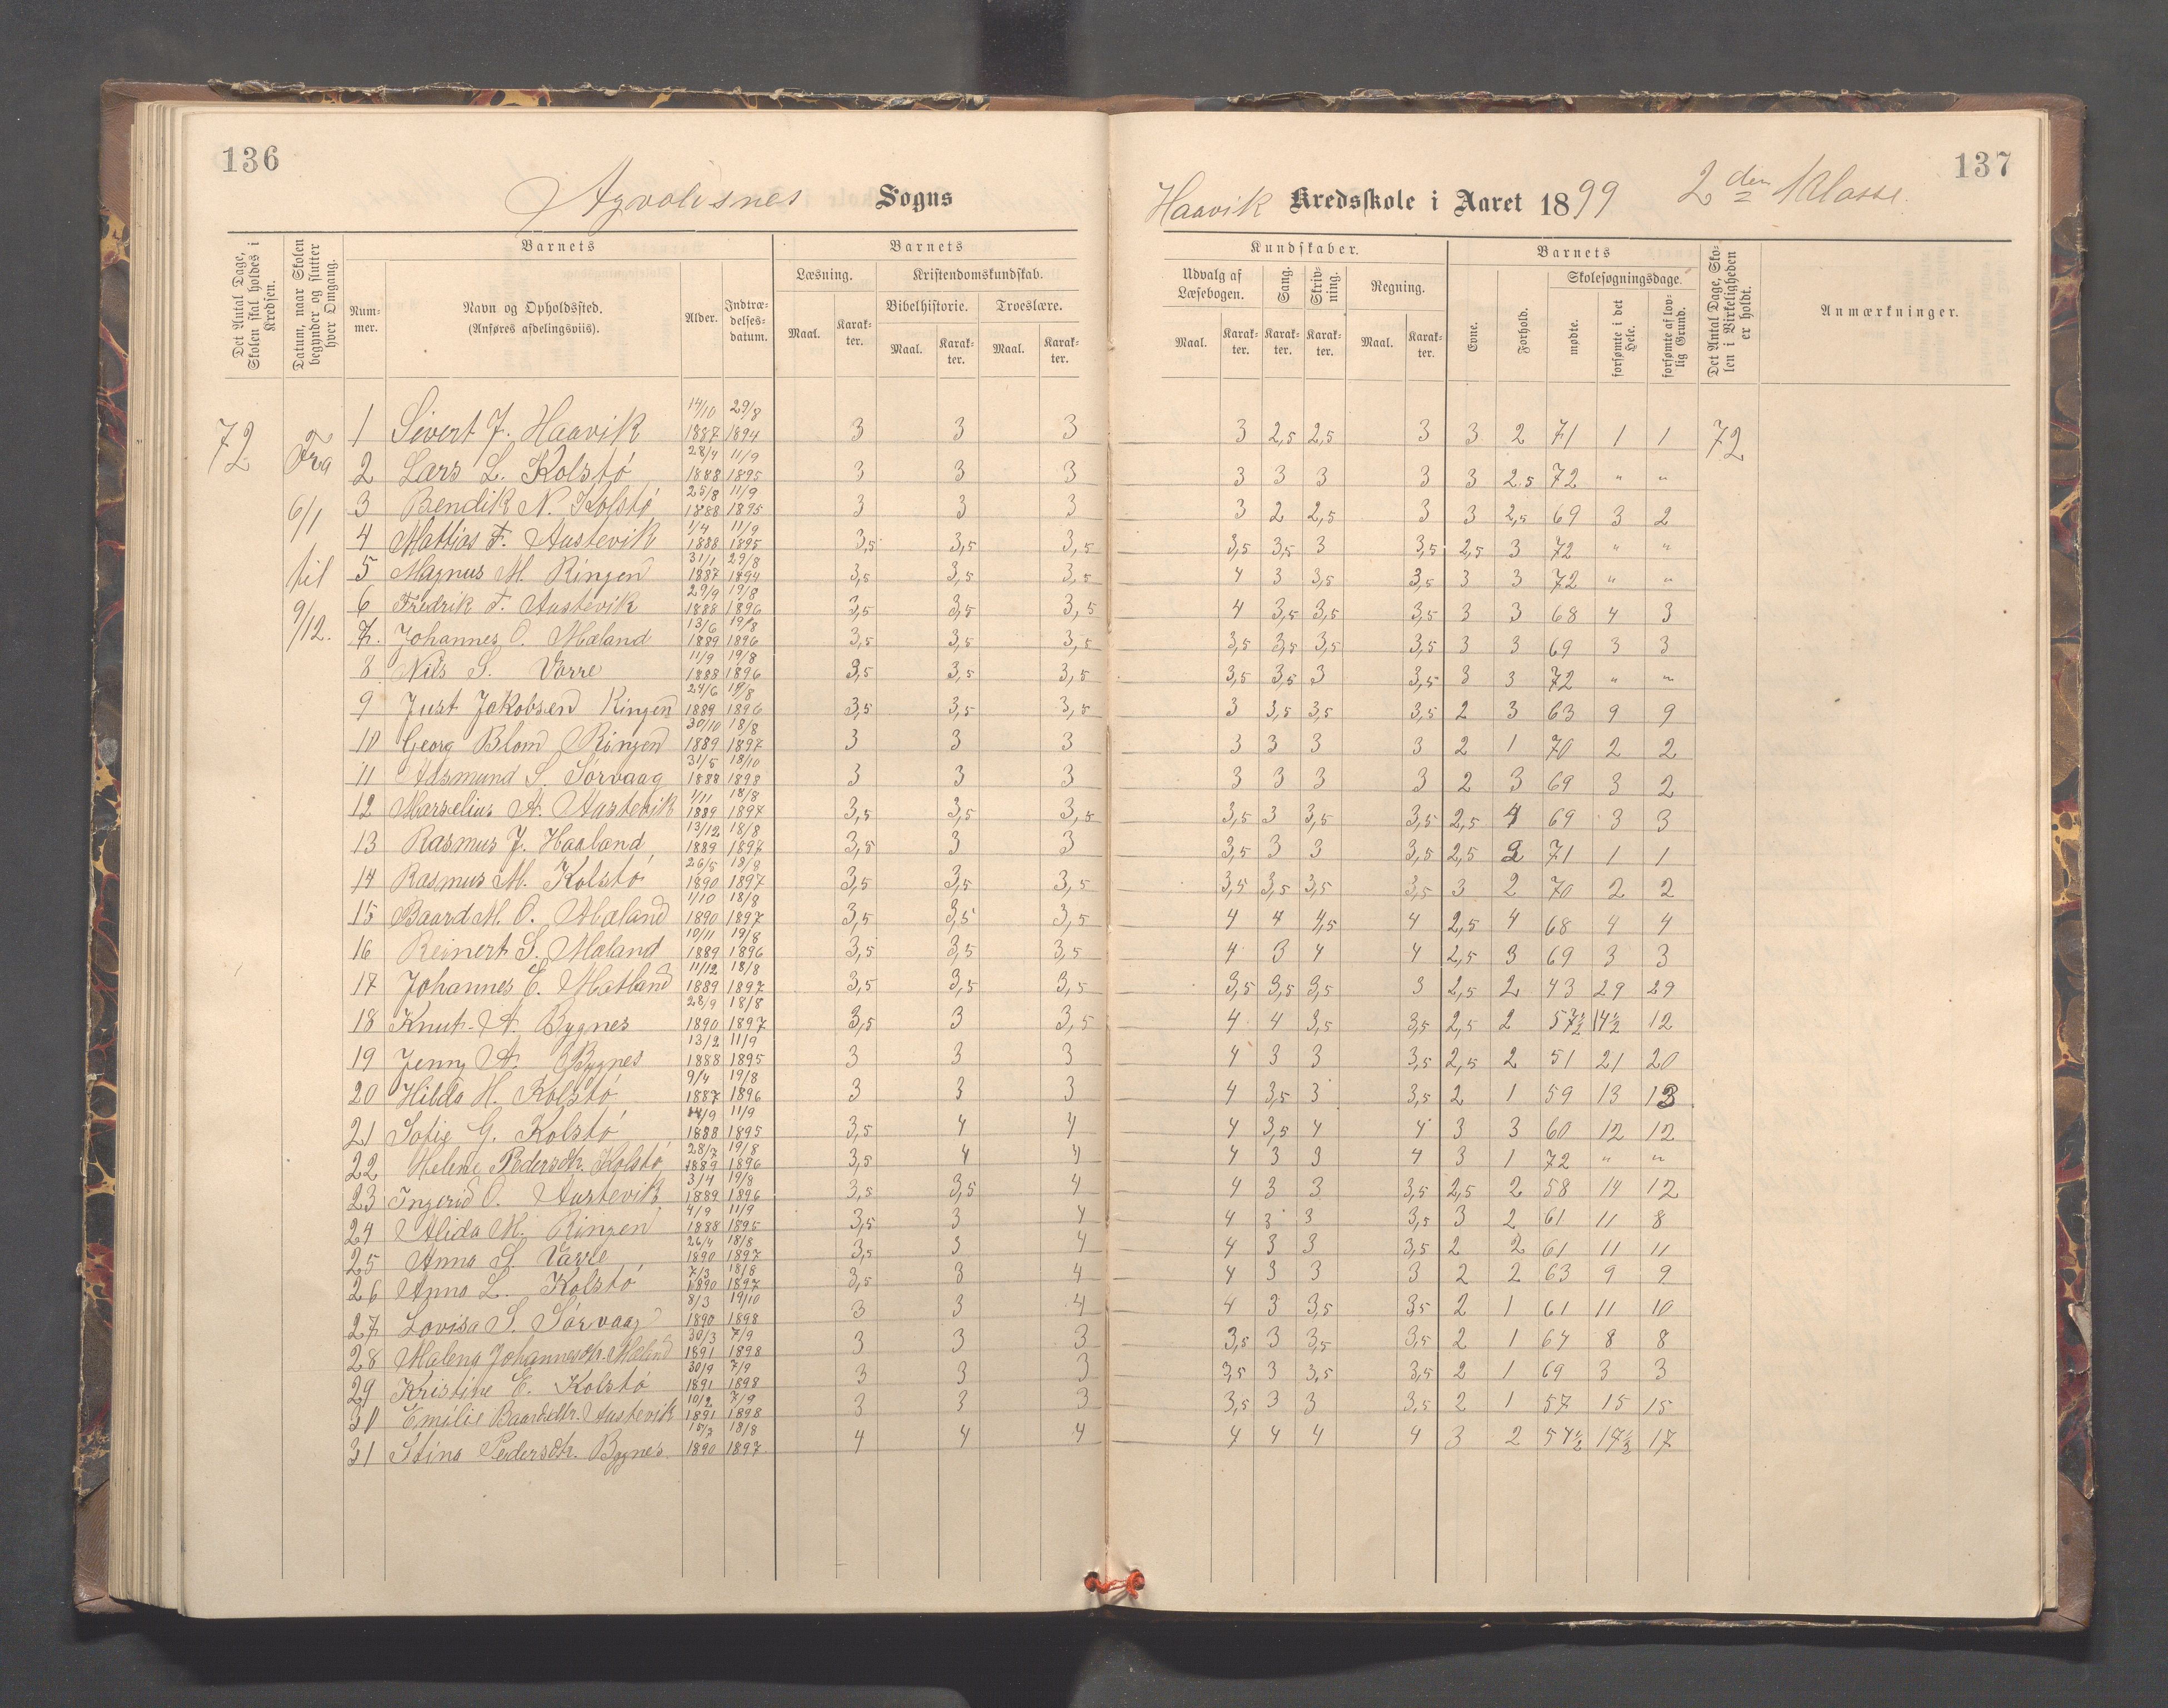 136
Agvoldsnes Sogns
Haavik Kredsskole i Aaret 1899 2den Klasse.
137
Det Antal Dage, Skolen skal holdes i Kredsen.
Datum, naar Skolen begynder og slutter hver Omgang.
Barnets
Barnets
Kundskaber.
Barnets
Det Antal Dage, Skolen i Virkeligheden er holdt.
Anmærkninger.
Nummer.
Navn og Opholdssted. (Anføres afdelingsviis).
Alder.
Indtrædelsesdatum.
Læsning.
Kristendomskundskab.
Bibelhistorie.
Troeslære.
Udvalg af Læsebogen.
Sang.
Skrivning.
Regning.
Evne.
Forhold.
Skolesøgningsdage.
mødte.
forsømte i det Hele.
forsømte af lovlig Grund.
Maal. Karakter. Maal. Karakter. Maal. Karakter. Maal. Karakter. Karakter. Karakter. Maal. Karakter.
72 Fra 6/1 til 9/12.
1 Sivert J. Haavik 14/10 1887 29/8 1894 3 3 3 3 2,5 2,5 3 3 2 71 1 1 72
2 Lars L. Kolstó 28/4 1888 11/9 1895 3 3 3 3 3 3 3 3 2.5 72 " "
3 Bendik N. Kolstó 25/8 1888 11/9 1895 3 3 3 3 2 2,5 3 3 2,5 69 3 2
4 Mattias F. Austevik 1/4 1888 11/9 1895 3,5 3,5 3,5 3,5 3,5 3 3,5 2,5 3 72 " "
5 Magnus M. Ringen 31/1 1887 29/8 1894 3,5 3,5 3,5 4 3 3,5 3,5 3 3 72 " "
6 Fredrik F. Austevik 29/9 1888 19/8 1896 3,5 3,5 3,5 4 3,5 3,5 3,5 3 3 68 4 3
7. Johannes O. Mæland 13/6 1889 19/8 1896 3,5 3,5 3,5 3,5 3,5 3,5 3,5 3 3 69 3 3
8 Nils S. Vorre 11/9 1888 19/8 1896 3,5 3,5 3,5 3,5 3,5 3 3,5 3 3 72 " "
9 Just Jakobsen Ringen 24/6 1889 19/8 1896 3,5 3,5 3,5 3 3,5 3,5 3,5 2 3 63 9 9
10 Georg Blom Ringen 30/10 1889 18/8 1897 3 3 3 3 3 3 3 2 1 70 2 2
11 Adsmund S. Sórvaag 31/5 1888 18/10 1898 3 3 3 3 3 3 3 2 3 69 3 2
12 Marselius A. Austevik 1/11 1889 18/8 1897 3,5 3,5 3,5 3,5 3 3,5 3,5 2,5 4 69 3 3
13 Rasmus J. Haaland 13/12 1889 18/8 1897 3,5 3 3 3,5 3 3 3,5 2,5 2 71 1 1
14 Rasmus M. Kolstó 26/5 1890 18/8 1897 3,5 3,5 3,5 3,5 3,5 3,5 3,5 3 2 70 2 2
15 Baard M. O. Mæland 1/10 1890 18/8 1897 3,5 3,5 3,5 4 4 4,5 4 2,5 4 68 4 4
16 Reinert S. Mæland 10/11 1889 19/8 1896 3,5 3,5 3,5 4 3 4 4 2,5 3 69 3 3
17 Johannes E. Matland 11/12 1889 18/8 1897 3,5 3,5 3,5 3,5 3,5 3,5 3 2,5 2 43 29 29
18 Knut A. Bygnes 28/9 1890 18/8 1897 3,5 3 3,5 4 4 3,5 3,5 2,5 2 57½ 14½ 12
19 Jenny A. Bygnes 13/2 1888 11/9 1895 3 3 3 4 3 3 3,5 2,5 2 51 21 20
20 Hilda H. Kolstó 9/4 1887 19/8 1896 3 3 3 4 3,5 3 3,5 2 1 59 13 13
21 Sofie G. Kolstó 14/9 1888 11/9 1895 3,5 4 4 4 3,5 4 4 3 3 60 12 12
22 Helene Pedersdtr. Kolstó 28/7 1889 19/8 1896 3,5 4 4 4 3 3 4 3 1 72 " "
23 Ingerid O. Austevik 3/4 1889 19/8 1896 3,5 3,5 4 4 3 3 3,5 2,5 2 58 14 12
24 Alida M. Ringen 4/9 1888 11/9 1895 3,5 3 4 4 3 3 3,5 3 2 61 11 8
25 Anna S. Varre 26/4 1890 18/8 1897 3,5 3 4 4 3 3 3,5 2 2 61 11 11
26 Anna L. Kolstó 7/3 1890 18/8 1897 3,5 3 4 4 3 3 3 2 2 63 9 9
27 Lovisa S. Sórvaag 8/3 1890 19/10 1898 3 3 4 4 3 3,5 3,5 2 1 61 11 10
28 Malena Johannesdtr. Mæland 30/3 1891 7/9 1898 3 3 3 3,5 3 3,5 3,5 2 1 64 8 8
29 Kristine E. Kolstó 30/9 1891 7/9 1898 3 3 3 3,5 3 3,5 3,5 2 1 69 3 3
30 Emilie Baardsdtr. Austevik 10/2 1891 7/9 1898 3 3 3 3,5 3 3 3,5 2 1 57 15 15
31 Stina Pedersdtr. Bygnes 15/7 1890 18/8 1897 4 4 4 4 4 4 4 3 2 54½ 17½ 17